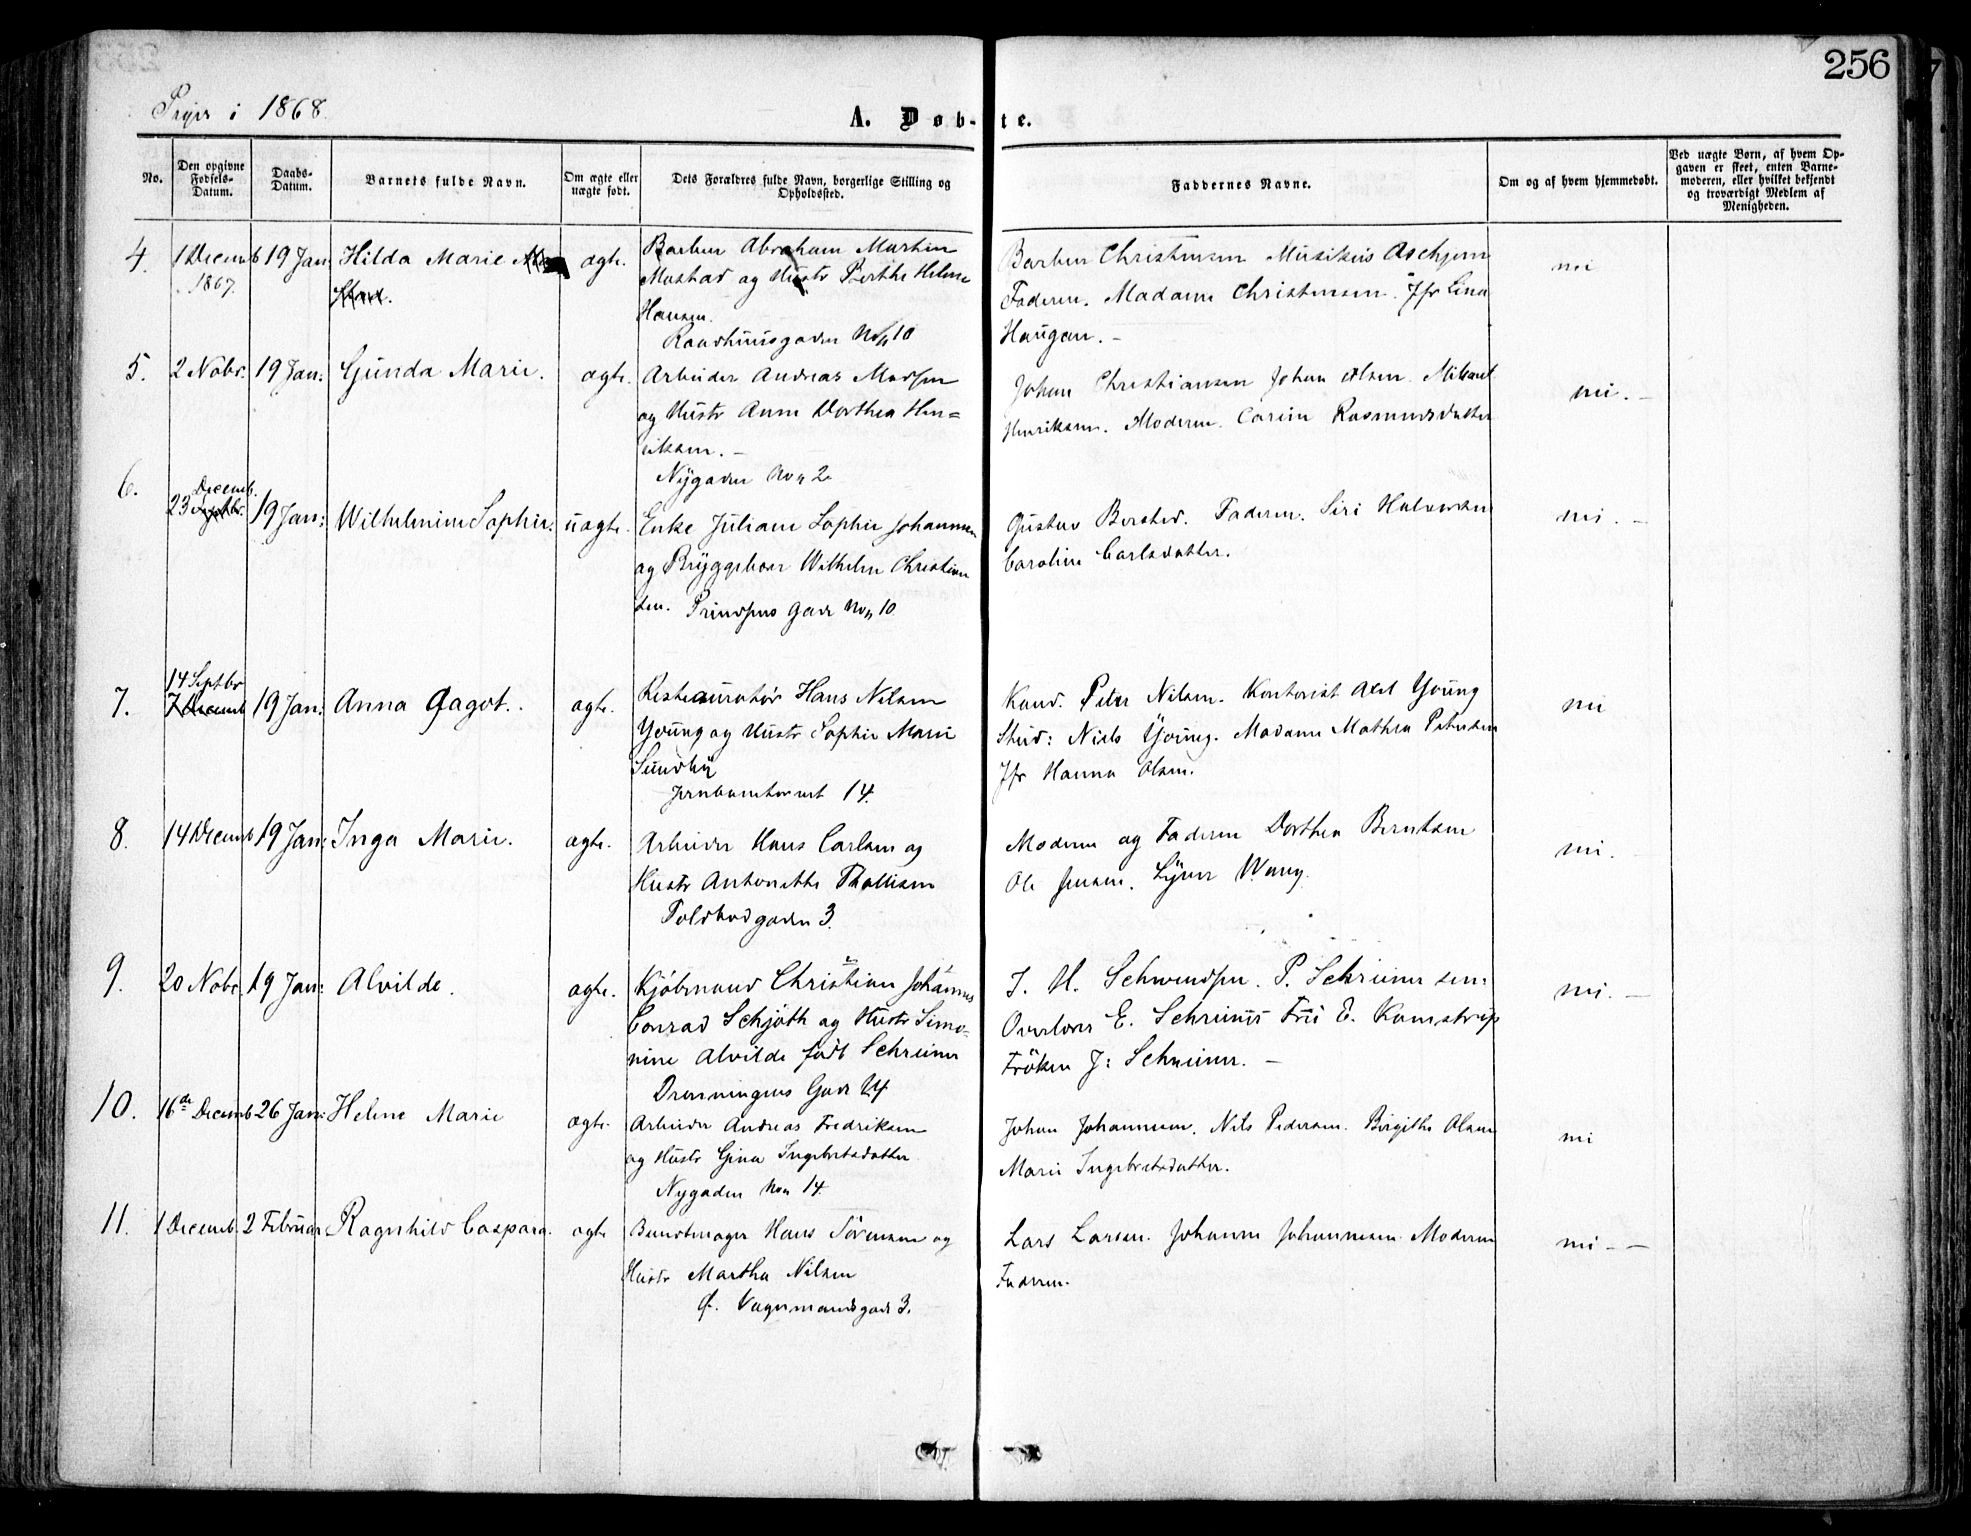 256
Piger i 1868.
A. Døb-te.
No.
Den opgivne Fødsels-Datum.
Daabs-Datum.
Barnets fulde Navn.
Om ægte eller uægte født.
Dets Forældres fulde Navn, borgerlige Stilling og Opholdssted.
Faddernes Navne.
Om og af hvem hjemmedøbt.
Ved uægte Børn, af hvem Opgaven er skeet, enten Barnemoderen, eller hvilket bekjendt og troværdigt Medlem af Menigheden.
4. 1 Decemb 1867. 19 Jan: Hilda Marie ægte.
Barber Abraham Martin
Mustad og Hustr Berthe Helene
Hansen.
Raadhuusgaden No 10
Barber Christensen Musikus Aschjem
Faderen. Madame Christensen. Jfr Lina
Haugan. –
nei
5. 2 Nobr. 19 Jan: Gunda Marie. ægte.
Arbeider Andreas Madsen
og Hustr Anne Dorthea Hen=
riksen. –
Nygaden No 2
Johan Christiansen Johan Olsen. Mikael
Henriksen. Moderen. Carin Rasmusdatter
nei. –
6. 23 Decemb. Septbr. 19 Jan: Wilhelmine Sophie. uægte.
Enke Juliane Sophie Johannesen
og Bryggebær Wilhelm Christian
sen. Prindsens Gade No 10
Gustav Bersted. Faderen. Siri Halvorsen
Caroline Carlsdatter.
nei. –
7. 14 Septbr 7 Decemb 19 Jan: Anna Dagot. ægte.
Restauratør Hans Nilsen
Young og Hustr Sophie Marie
Sundby
Jernbanetorvet 14.
Kand. Peter Nilsen. Kontorist Axel Young
Stud: Niels Young. Madame Mathea Petersen
Jfr Hanna Olsen.
nei
8. 14 Decemb 19 Jan: Inga Marie. ægte.
Arbeider Hans Carlsen og
Hustr Antonette
Toldbodgaden 3.
Moderen og Faderen Dorthea Berntsen
Ole Jensen. Wang.
nei.
9. 20 Nobr. 19 Jan: Alvilde. ægte.
Kjøbmand Christian Johannes
Conrad Schjøth og Hustr Simo-
nine Alvilde født Schreiner
Dronningens Gade 24
J. H. Schwendsen. P. Schreiner sen:
E. Schreiner Fru E. Kamstrup
Frøken J: Schreiner. –
nei. –
10. 16de Decemb 26 Jan: Helene Marie ægte.
Arbeider Andreas Fredriksen
og Hustr Gina Ingebretsdatter
Nygaden No 14.
Johan Johannesen. Nils Pedersen. Birgithe Olsen
Marie Ingebretsdatter.
nei
11. 1 Decemb. 2 Februar Ragnhild Caspara. ægte
Buntmager Hans Sørensen og
Hustr Martha Nilsen
Ø. Vognmandsgade 3.
Lars Larsen. Johanne Johannesen. Moderen
Faderen.
nei – –